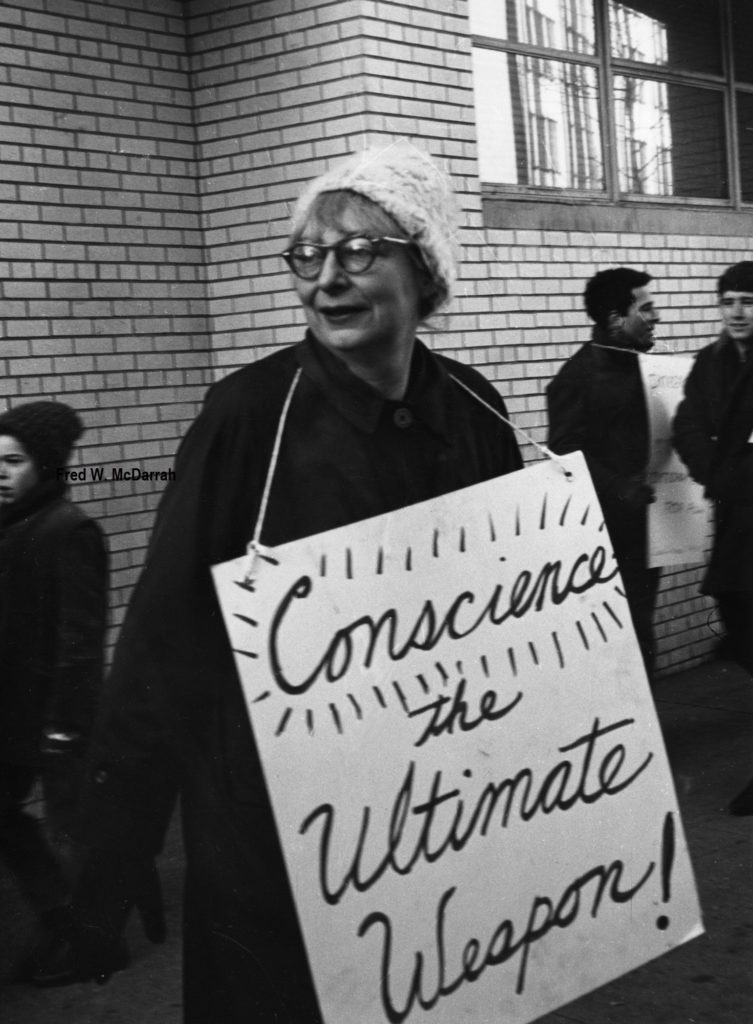 Fred W. McDarrah
Conscience
the
Ultimate
Weapon!